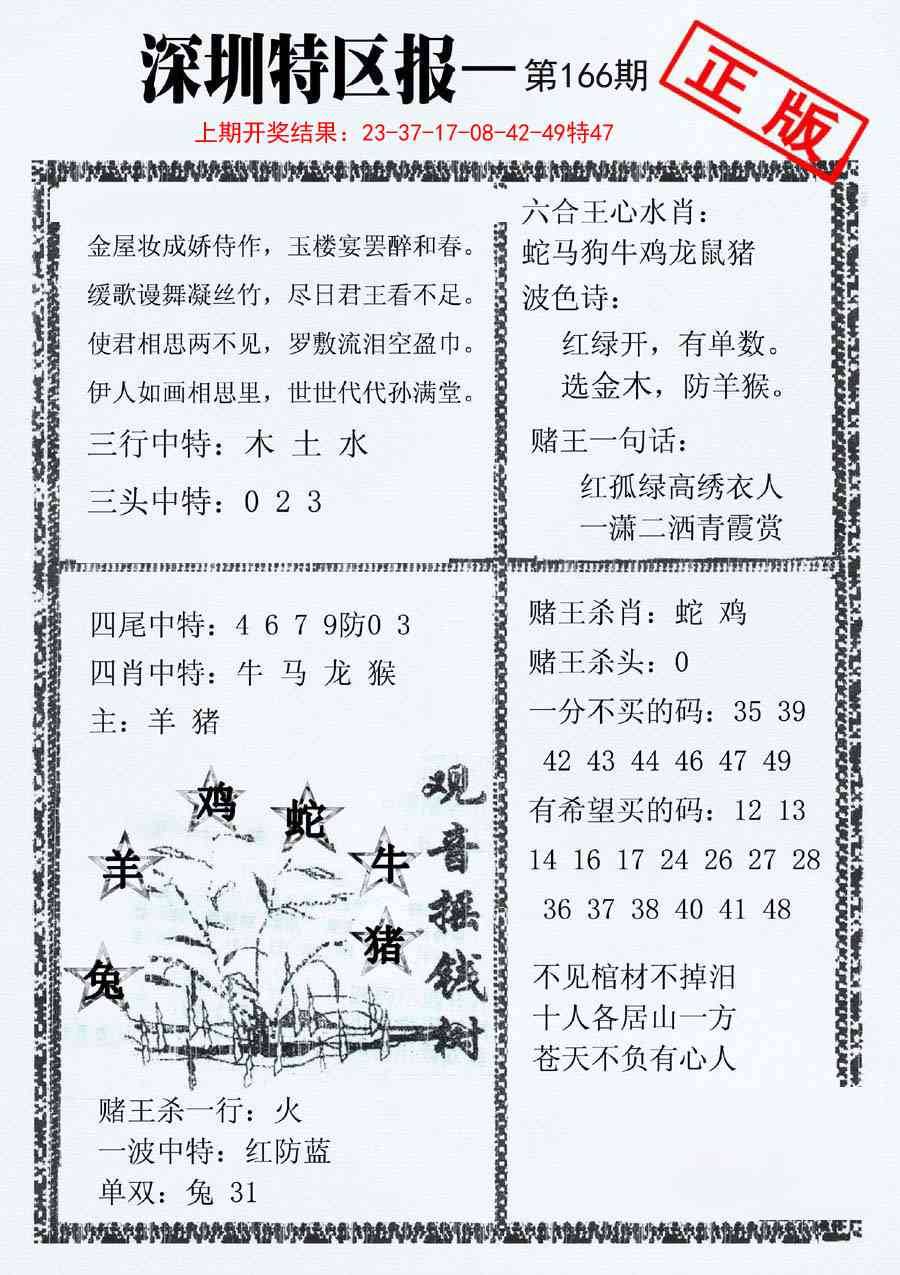 深圳特区报—第166期
正版
上期开奖结果：23-37-17-08-42-49特47
金屋妆成娇侍作，玉楼宴罢醉和春。
缓歌谩舞凝丝竹，尽日君王看不足。
使君相思两不见，罗敷流泪空盈巾。
伊人如画相思里，世世代代孙满堂。
三行中特：木 土 水
三头中特：0 2 3
六合王心水肖：
蛇马狗牛鸡龙鼠猪
波色诗：
红绿开，有单数。
选金木，防羊猴。
赌王一句话：
红孤绿高绣衣人
一潇二洒青霞赏
四尾中特：4 6 7 9防0 3
四肖中特：牛 马 龙 猴
主：羊 猪
观音摇钱树
鸡
蛇
羊
牛
猪
兔
赌王杀一行：火
一波中特：红防蓝
单双：兔 31
赌王杀肖：蛇 鸡
赌王杀头：0
一分不买的码：35 39
42 43 44 46 47 49
有希望买的码：12 13
14 16 17 24 26 27 28
36 37 38 40 41 48
不见棺材不掉泪
十人各居山一方
苍天不负有心人